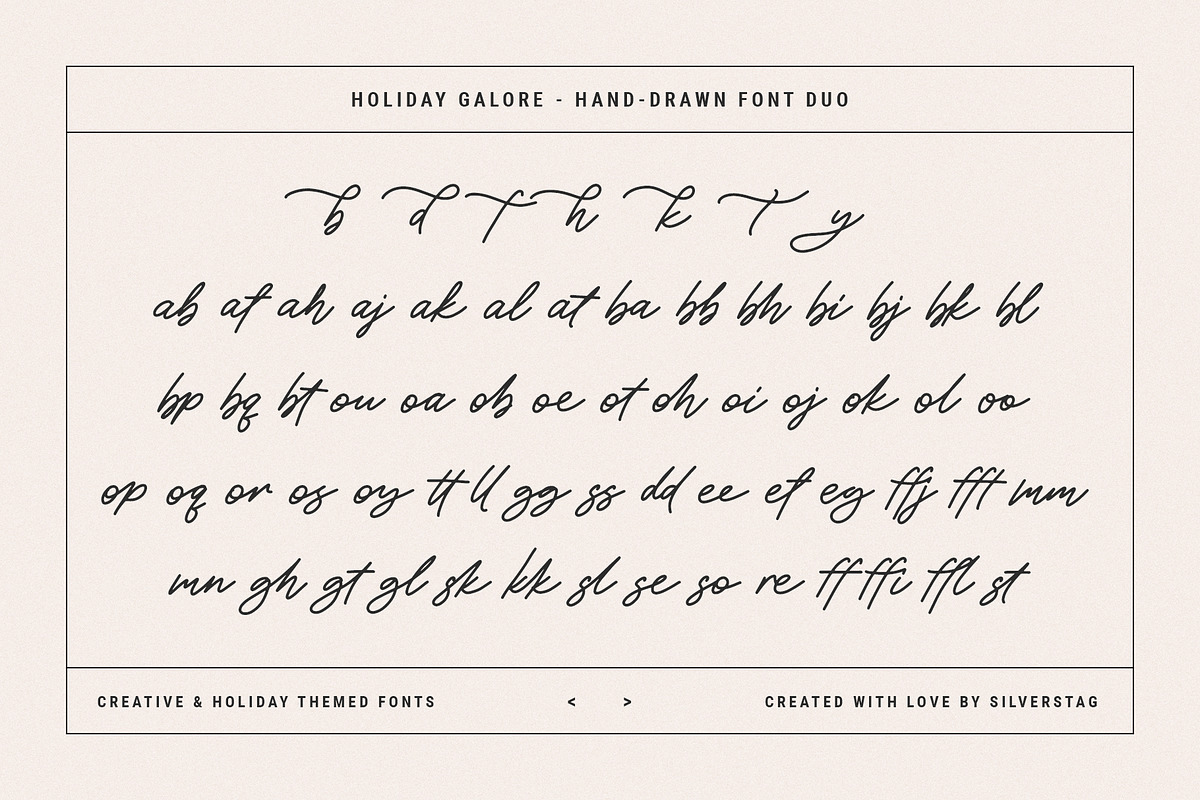 HOLIDAY GALORE - HAND-DRAWN FONT DUO
b d f h k t y
ab af ah aj ak al at ba bb bh bi bj bk bl
bp bq bt ou oa ob oe ot oh oi oj ok ol oo
op oq or os oy tt ll gg ss dd ee ef eg ffj fft mm
mn gh gt gl sk kk sl se so re ff ffi ffl st
CREATIVE & HOLIDAY THEMED FONTS < > CREATED WITH LOVE BY SILVERSTAG